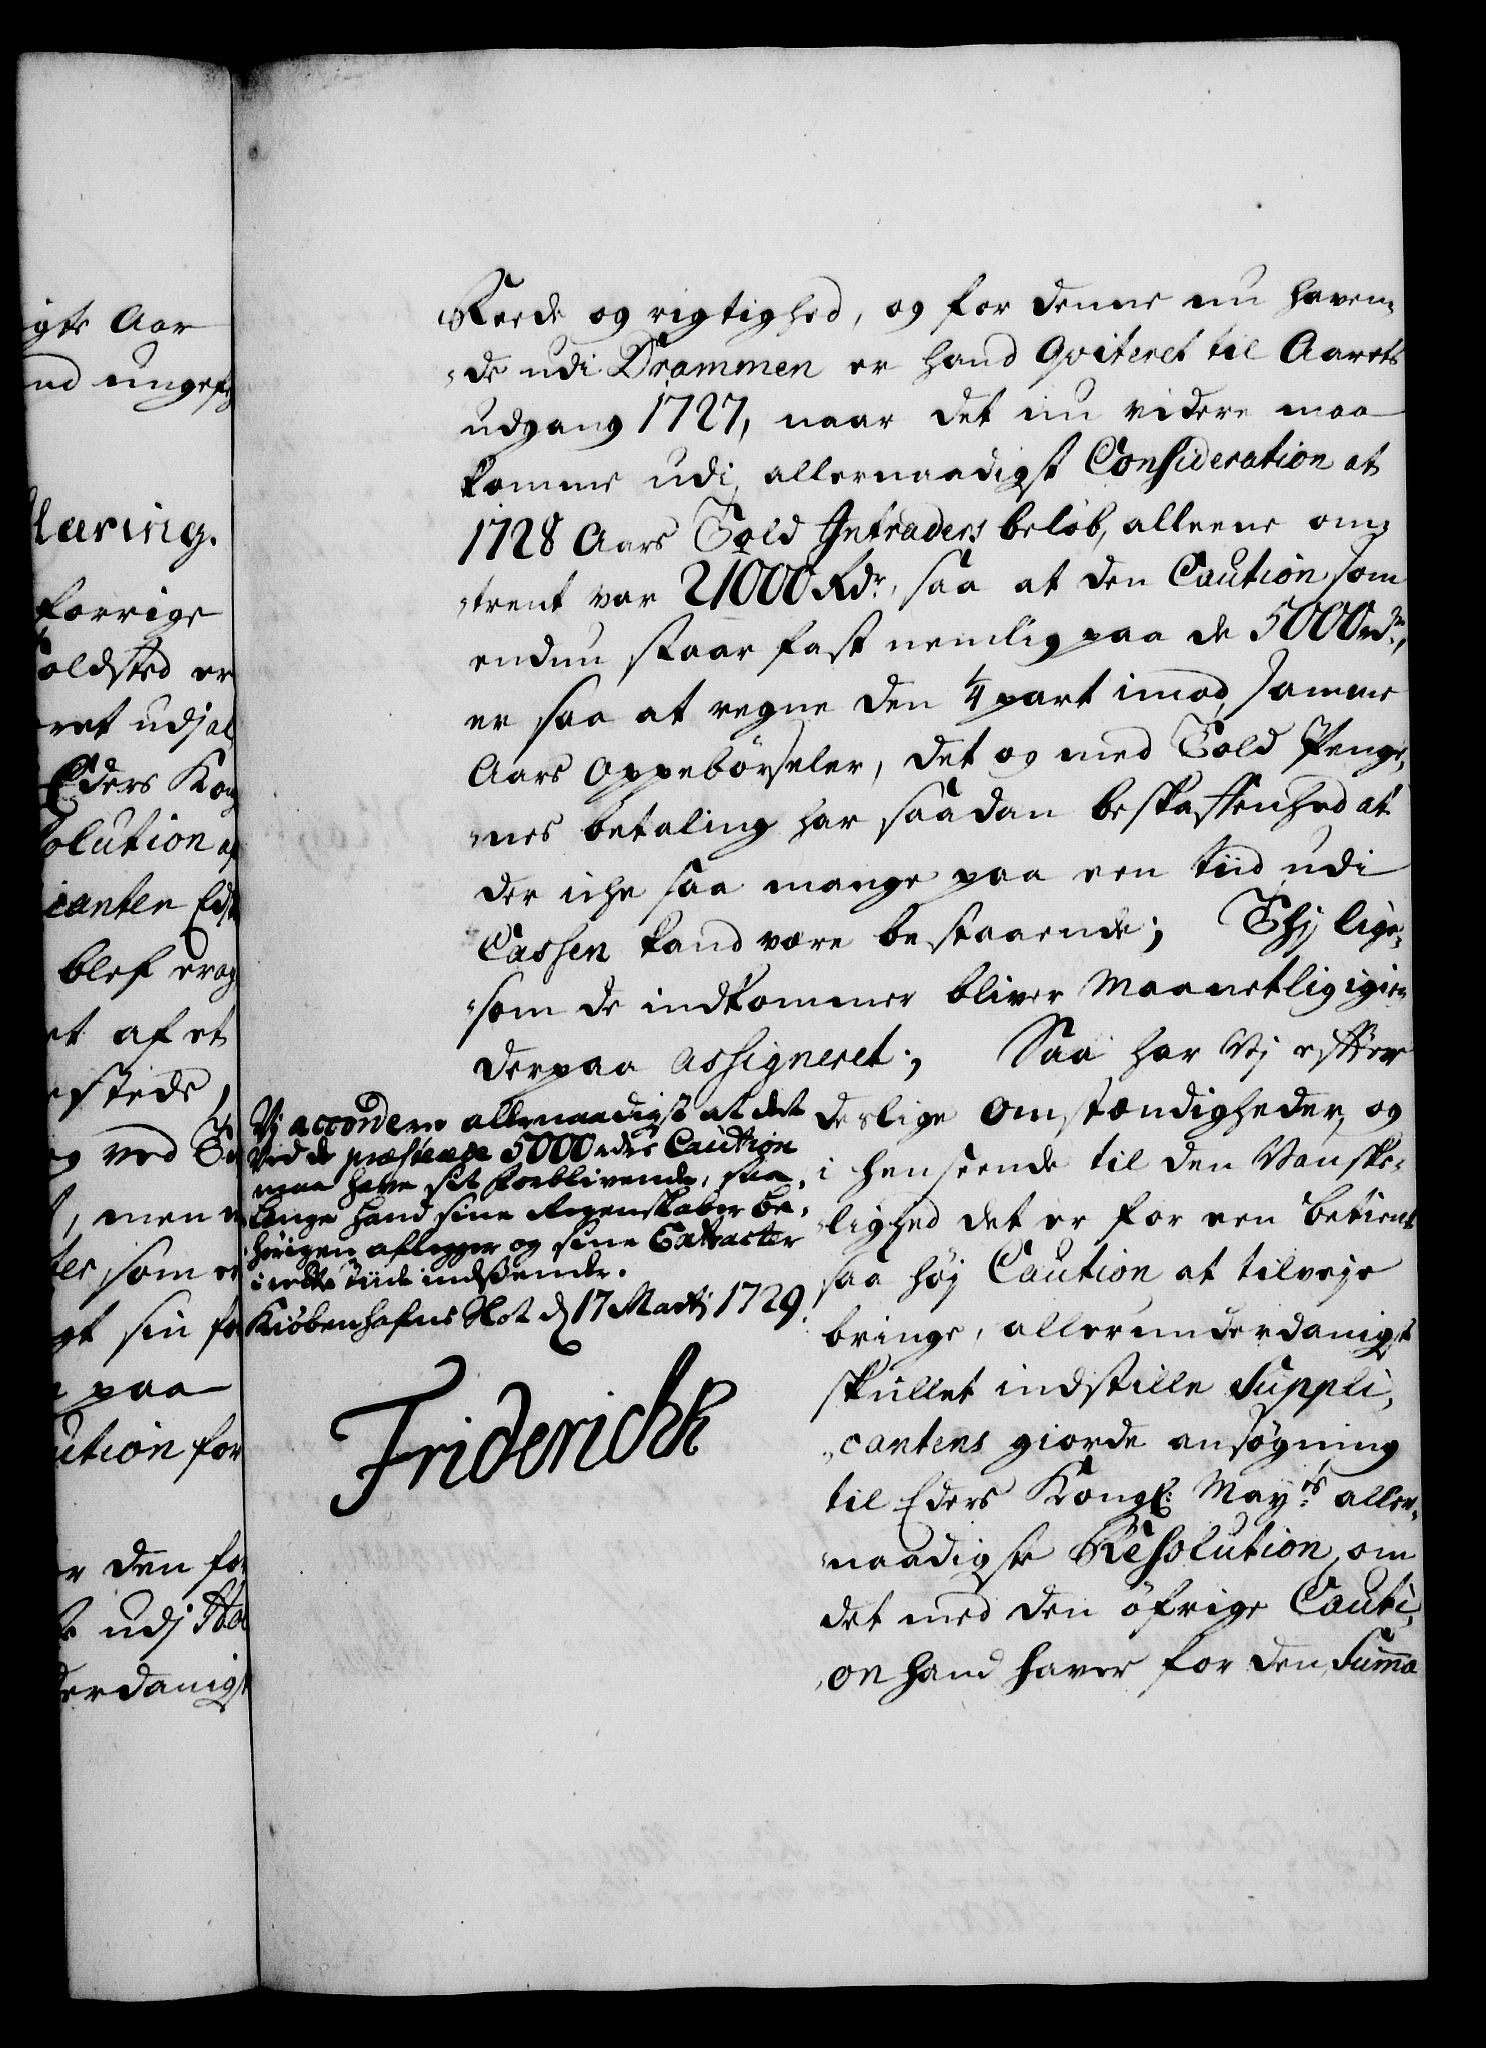 igte Aar
nd ungefr
laring.
forrige
Toldsted er
ret udj al
Eders Kon
olution af
icanten Eds
blef erag
et af et
estede,
og ved To
, men
ter som er
gt sin fo
paa
ution for
r den for
udj
derdanigst
Reede og rigtighed, og for denne nu haven¬
¬de udi Drammen er hand qviteret til Aarets
udgang 1727, naar det nu videre maa
komme udi allernaadigst Consideration at
1728 Aars Told Intraders beløb, alleene om¬
¬trent var 21000 Rdr, saa at den Caution som
endnu staar fast nemlig paa de 5000 rdr,
er saa at regne den 1/4 part imod samme
Aars Oppebörseler, det og med Told Penge¬
¬nes betaling har saadan beskaffenhed at
der iche saa mange paa een tiid udi
Cassen kand være bestaaende; Thj lige¬
¬som de indkommer bliver Maanetlig igien
derpaa assigneret; Saa har Vj efter
deslige omstændigheder, og
i henseende til den Vanske¬
¬lighed det er for een betient
saa høj Caution at tilveje
bringe, allerunderdanigst
skullet indstille Suppli¬
¬cantens giorde ansøgning
til Eders Kongl: Mayts aller¬
¬naadigste Resolution, om
det med den öfrige Cauti¬
¬on hand haver for den Summa
Vj accordere allernaadigst at det
ved de præsterede 5000 rdrs Caution
maa have sit forblivende, saa
længe hand sine Regenskaber be¬
hörigen aflegger og sine Extracter
i rette tiide indsender.
Kiöbenhafns Slot d 17 Martj 1729.
Friderich R